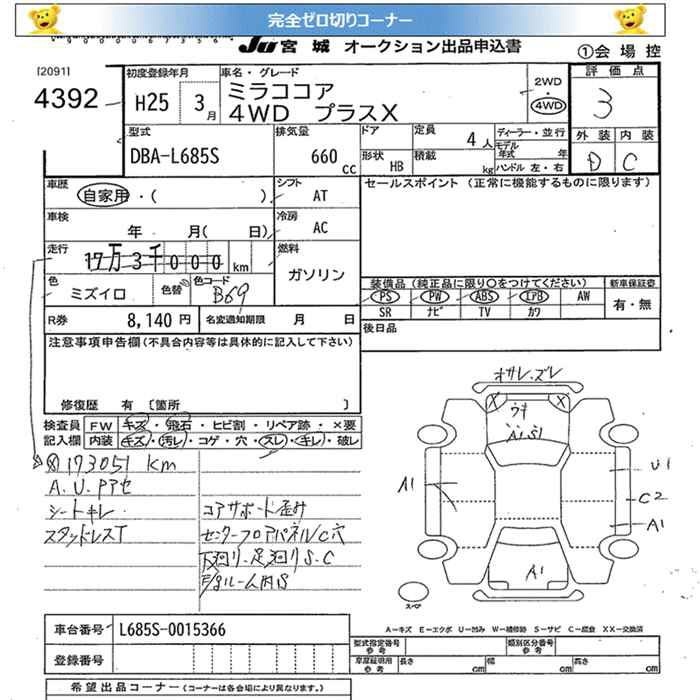 完全ゼロ切りコーナー
JU 宮城 オークション出品申込書
①会場控
[2091]
4392
初度登録年月
H25 3月
車名・グレード
ミラココア
4WD プラスX
2WD
4WD
評価点
3
外装 内装
D C
型式
DBA-L685S
排気量
660 cc
ドア
形状 HB
定員 4人
積載 kg
ディーラー・並行
モデル年式 年
ハンドル 左・右
車歴
自家用・( )
シフト
AT
セールスポイント (正常に機能するものに限ります)
車検
年 月( 日)
冷房
AC
走行
17万3千000 km
燃料
ガソリン
色
ミズイロ
色替
色コード
B69
装備品 (純正品に限り○をつけてください)
新車保証書
PS PW ABS エアB AW
有・無
SR ナビ TV カワ
R券 8,140円
名変通知期限 月 日
後日品
注意事項申告欄(不具合内容等は具体的に記入して下さい)
修復歴 有 〔箇所 〕
検査員記入欄
FW キズ・飛石・ヒビ割・リペア跡・×要
内装 キズ・汚レ・コゲ・穴・スレ・キレ・破レ
173051 km
A.U.Pアセ
シートキレ
スタッドレスT
コアサポート歪み
センターフロアパネルC穴
下廻り・足廻りS.C
オサレ・ズレ
X
X
ウキ
A1.S1
A1
U1
C2
A1
A1
スペア
A-キズ E-エクボ U-凹み W-補修跡 S-サビ C-腐食 XX-交換済
車台番号 L685S-0015366
登録番号
型式指定番号
参考
類別区分番号
参考
車庫証明用
参考
長さ cm
幅 cm
高さ cm
希望出品コーナー (コーナーは各会場により異なります。)